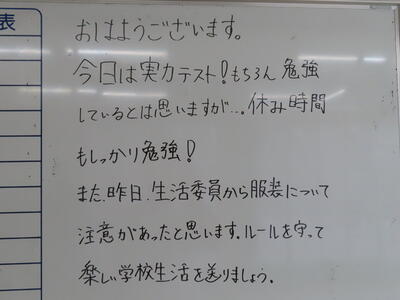 表
おはようございます。
今日は実力テスト!もちろん勉強
しているとは思いますが…。休み時間
もしっかり勉強!
また、昨日、生活委員から服装について
注意があったと思います。ルールを守って
楽しい学校生活を送りましょう。